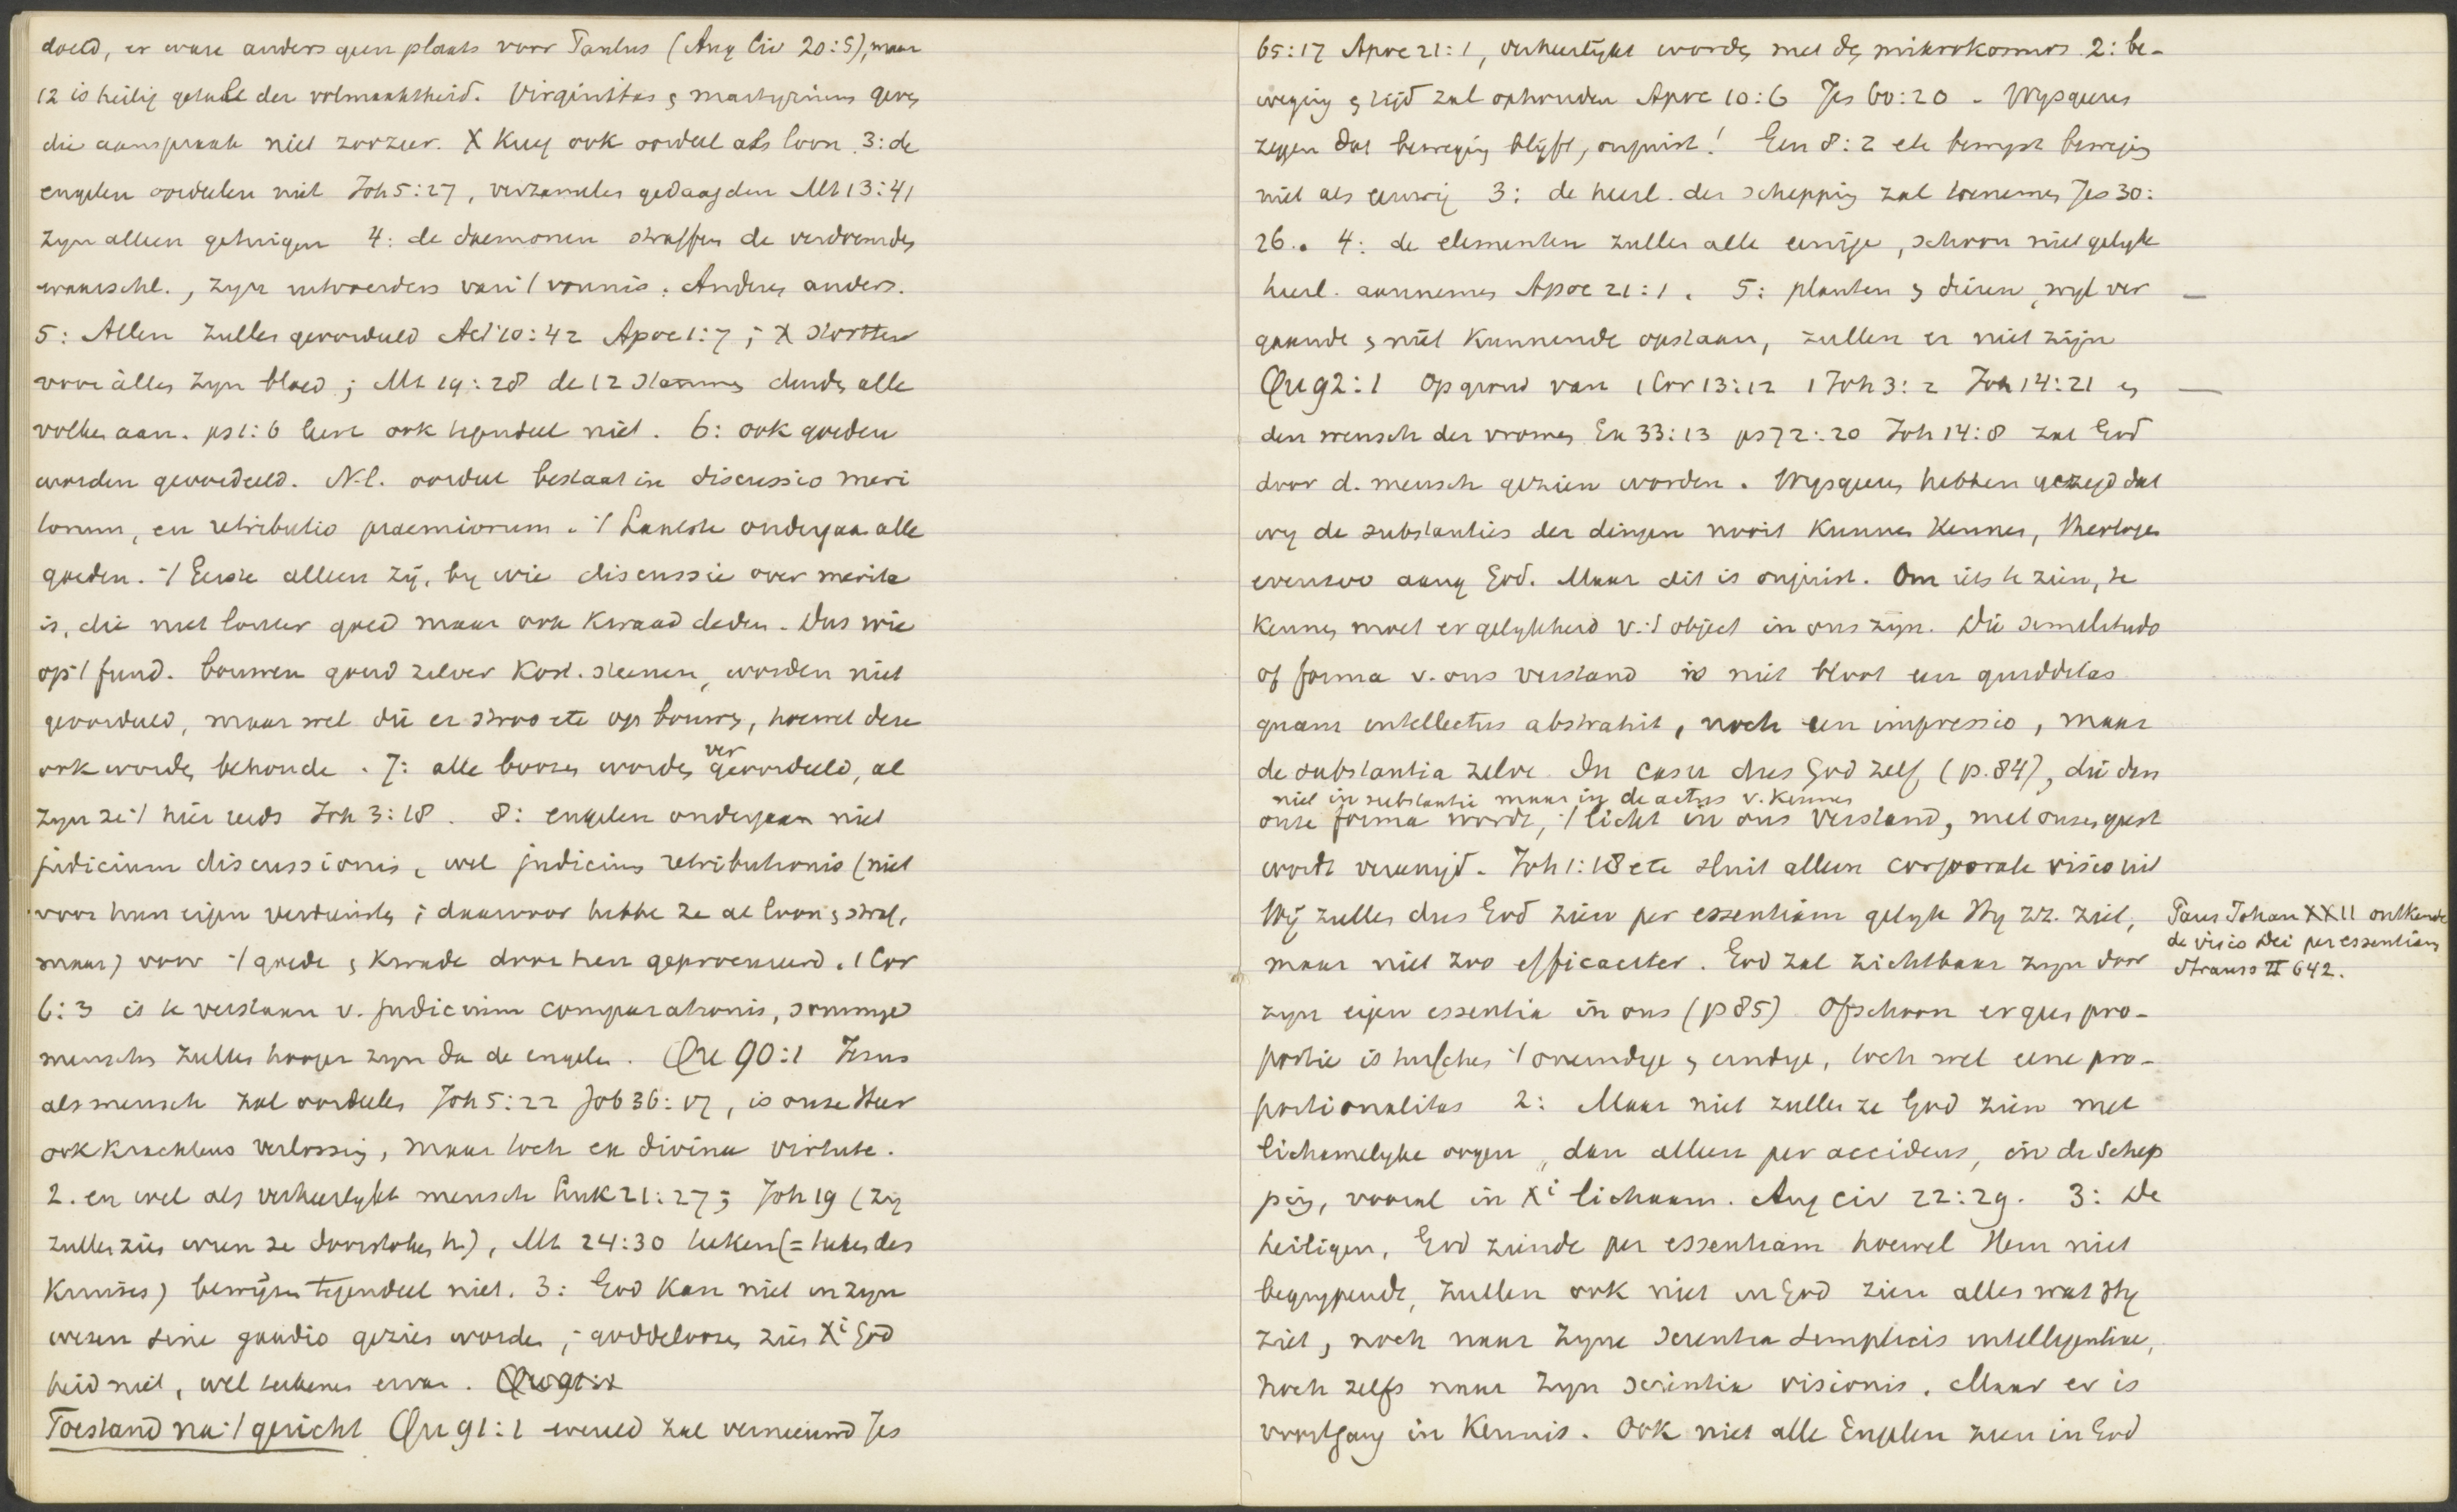 doeld, er ware anders geen plaats voor Paulus (Aug Civ 20:5), maar
12 is heilig getal der volmaaktheid. Virginitas & martyrium geven
die aanspraak niet zoozeer. X kreeg ook oordeel als loon. 3: de
engelen oordeelen niet Joh 5:27, verzamelen gedaagden Mt 13:41
zyn alleen getuigen 4: de daemonen straffen de verdoemden
waarschl., zyn uitvoerders van 't vonnis. Anderen anders.
5: Allen zullen geoordeeld Act 10:42 Apoc 1:7; X stortte
voor allen zyn bloed; Mt 19:28 de 12 stammen duiden alle
volken aan. ps 1:6 leert ook tegendeel niet. 6: ook goeden
worden geoordeeld. N.l. oordeel bestaat in discussio meri
torum, en retributio praemiorum. 't Laatste ondergaan alle
goeden. 't Eerste alleen zij, by wie discussie over merita
is, die niet louter goed maar ook kwaad deden. Dus wie
op 't fund. bouwen goud zilver kost. steenen, worden niet
geoordeeld, maar wel die er stroo etc op bouwen, hoewel deze
ook worden behoude. 7: alle boozen worden ver geoordeeld, al
zyn ze 't hier reeds Joh 3:18. 8: engelen ondergaan niet
judicium discussionis, wel judicium retributionis (niet
voor hun eigen verdiensten; daarvoor hebben ze al loon & straf,
maar) voor 't goede & kwade door hen geprocureerd. 1 Cor
6:3 is te verstaan v. judicium comparationis, sommige
menschen zullen hooger zyn dan de engelen. Qu 90:1 Jesus
als mensch zal oordeelen Joh 5:22 Job 36:17, is onze Heer
ook krachtens verlossing, maar toch ex divina virtute.
2. en wel als verheerlykt mensch Luk 21:27; Joh 19 (zy
zullen zien wien ze doorstoken h.), Mt 24:30 teeken (= teeken des
Kruises) bewijzen tegendeel niet. 3: God kan niet in zyn
wezen sine gaudio gezien worden; goddeloozen zien Xi God
heid niet, wel teekenen ervan. Qu 91:1
Toestand na 't gericht Qu 91:1 wereld zal vernieuwd Jes
65:17 Apoc 21:1, verheerlijkt worden met den mikrokosmos 2: be-
weging & tijd zal ophouden Apoc 10:6 Jes 60:20. Wysgeeren
zeggen dat beweging blijft, onjuist! Gen 8:22 etc bewyst beweging
niet als eeuwig 3: de heerl. der schepping zal toenemen Jes 30:
26. 4: de elementen zullen alle eenige, schoon niet gelyke
heerl. aannemen Apoc 21:1. 5: planten & dieren, wyl ver
gaande & niet kunnende opstaan, zullen er niet zijn
Qu 92:1 Op grond van 1 Cor 13:12 1 Joh 3:2 Joh 14:21 en
den wensch der vromen Ex 33:13 ps 72:20 Joh 14:8 zal God
door d. mensch gezien worden. Wysgeeren hebben gezegd dat
wy de substanties der dingen nooit kunnen kennen, theologen
evenzoo aang God. Maar dit is onjuist. Om iets te zien, te
kennen, moet er gelykheid v. 't object in ons zijn. Die similitudo
of forma v. ons verstand is niet bloot een quidditas
quam intellectus abstrahit, noch een impressio, maar
de substantia zelve. In casu dus God zelf (p. 84), die dan
niet in substantie maar in de actus v. kennen
onze forma wordt, 't licht in ons verstand, met onzen geest
wordt vereenigd. Joh 1:18 etc sluit alleen corporale visio uit
Wij zullen dus God zien per essentiam gelyk Hy zz. ziet,
maar niet zoo efficaciter. God zal zichtbaar zyn door
zyn eigen essentia in ons (p 85) Ofschoon er geen pro-
portie is tusschen 't oneindige & eindige, toch wel eene pro-
portionalitas 2: Maar niet zullen ze God zien met
lichamelyke oogen, dan alleen per accidens, in de schep
ping, vooral in Xi lichaam. Aug Civ 22:29. 3: De
heiligen, God ziende per essentiam hoewel Hem niet
begrypende, zullen ook niet in God zien alles wat Hy
ziet, noch naar zyne scientia simplicis intelligentiae,
noch zelfs naar zyn scientia visionis. Maar er is
voortgang in kennis. Ook niet alle Engelen zien in God
Paus Johan XXII ontkende
de visio Dei per essentiam
Strauss II 642.